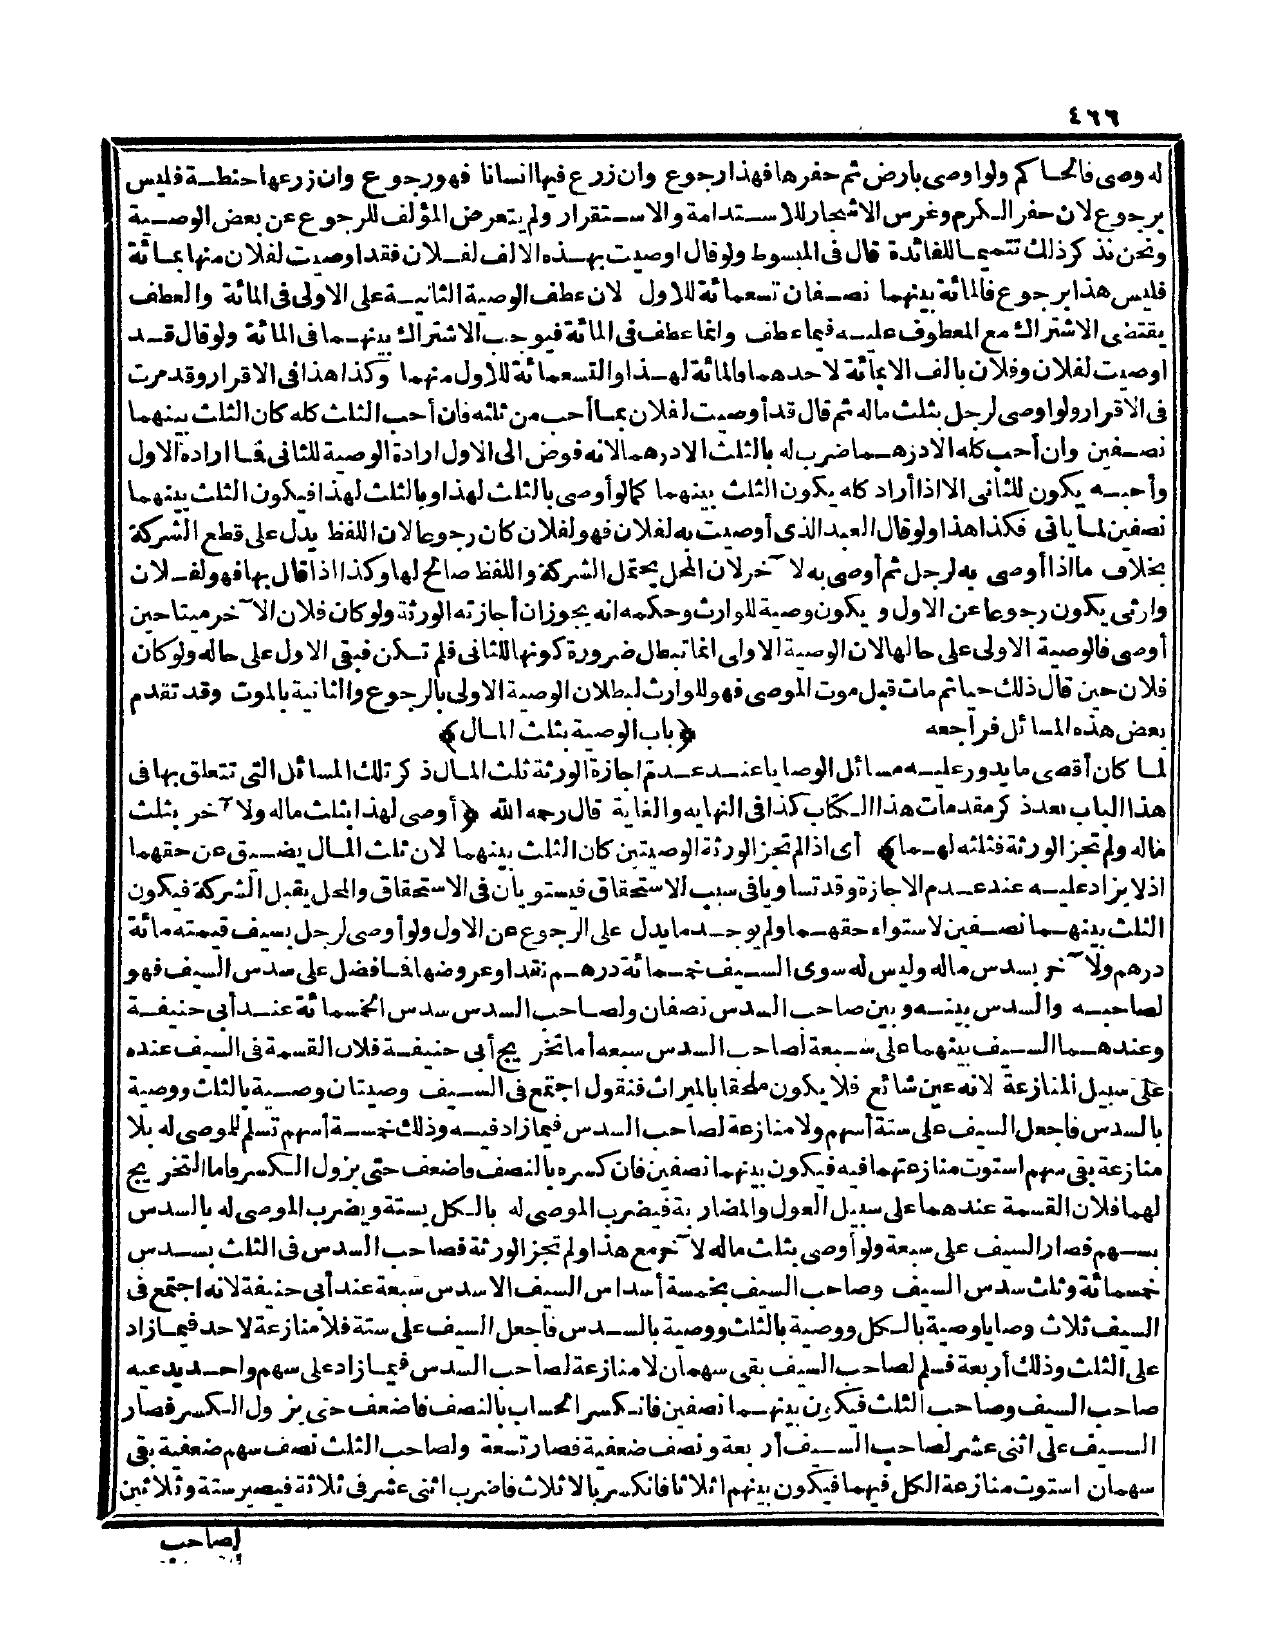 ٤٦٦
له وصى فالحاكم ولو أوصى بارض ثم حفرها فهذا رجوع وان زرع فيها انسانا فهو رجوع وان زرعها حنطة فليس
برجوع لان حفر الكرم وغرس الاشجار للاستدامة والاستقرار ولم يتعرض المؤلف للرجوع عن بعض الوصية
ونحن نذكر ذلك تتميما للفائدة قال فى المبسوط ولو قال اوصيت بهذه الالف لفلان فقد اوصيت لفلان منها بمائة
فليس هذا برجوع فالمائة بينهما نصفان تسعمائة للاول لان عطف الوصية الثانية على الاولى فى المائة والعطف
يقتضى الاشتراك مع المعطوف عليه فيما عطف وانما عطف فى المائة فيوجب الاشتراك بينهما فى المائة ولو قال قد
اوصيت لفلان وفلان بالف الا بمائة لاحدهما فالمائة لهذا والتسعمائة للاول منهما وكذا هذا فى الاقرار وقد مرت
فى الاقرار ولو اوصى لرجل بثلث ماله ثم قال قد أوصيت لفلان بما أحب من ثلثه فان أحب الثلث كله كان الثلث بينهما
نصفين وان أحب كله الا درهما ضرب له بالثلث الا درهما لانه فوض الى الاول ارادة الوصية للثانى فما اراده الاول
وأحبه يكون للثانى الا اذا أراد كله يكون الثلث بينهما كما لو أوصى بالثلث لهذا وبالثلث لهذا فيكون الثلث بينهما
نصفين لما يأتى فكذا هذا ولو قال العبد الذى أوصيت به لفلان فهو لفلان كان رجوعا لان اللفظ يدل على قطع الشركة
بخلاف ما اذا أوصى به لرجل ثم أوصى به لآخر لان المحل يحتمل الشركة واللفظ صالح لها وكذا اذا قال بها فهو لفلان
وارثى يكون رجوعا عن الاول و يكون وصية للوارث وحكمه انه يجوز ان أجازته الورثة ولو كان فلان الآخر ميتا حين
أوصى فالوصية الاولى على حالها لان الوصية الاولى انما تبطل ضرورة كونها للثانى فلم تكن فبقى الاول على حاله ولو كان
فلان حين قال ذلك حيا ثم مات قبل موت الموصى فهو للوارث لبطلان الوصية الاولى بالرجوع والثانية بالموت وقد تقدم
بعض هذه المسائل فراجعه ﴿باب الوصية بثلث المال﴾
لما كان أقصى ما يدور عليه مسائل الوصايا عند عدم اجازة الورثة ثلث المال ذكر تلك المسائل التى تتعلق بها فى
هذا الباب بعد ذكر مقدمات هذا الكتاب كذا فى النهايه والغاية قال رحمه الله ﴿أوصى لهذا بثلث ماله ولآخر بثلث
ماله ولم تجز الورثة فثلثه لهما﴾ أى اذا لم تجز الورثة الوصيتين كان الثلث بينهما لان ثلث المال يضيق عن حقهما
اذ لا يزاد عليه عند عدم الاجازة وقد تساويا فى سبب الاستحقاق فيستويان فى الاستحقاق والمحل يقبل الشركة فيكون
الثلث بينهما نصفين لاستواء حقهما ولم يوجد ما يدل على الرجوع عن الاول ولو أوصى لرجل بسيف قيمته مائة
درهم ولآخر بسدس ماله وليس له سوى السيف خمسمائة درهم نقدا وعروضها فما فضل على سدس السيف فهو
لصاحبه والسدس بينه وبين صاحب السدس نصفان ولصاحب السدس سدس الخمسمائة عند أبى حنيفة
وعندهما السيف بينهما على سبعة لصاحب السدس سبعه أما تخريج أبى حنيفة فلان القسمة فى السيف عنده
على سبيل المنازعة لانه عين شائع فلا يكون ملحقا بالميراث فنقول اجتمع فى السيف وصيتان وصية بالثلث ووصية
بالسدس فاجعل السيف على ستة أسهم ولا منازعة لصاحب السدس فيما زاد فيه وذلك خمسة أسهم تسلم للموصى له بلا
منازعة بقى سهم استوت منازعتهما فيه فيكون بينهما نصفين فان كسره بالنصف فاضعف حتى يزول الكسر فاما التخريج
لهما فلان القسمة عندهما على سبيل العول والمضاربة فيضرب الموصى له بالكل بستة ويضرب الموصى له بالسدس
بسهم فصار السيف على سبعة ولو أوصى بثلث ماله لآخر مع هذا ولم تجز الورثة فصاحب السدس فى الثلث بسدس
خمسمائة وثلث سدس السيف وصاحب السيف بخمسة أسداس السيف الا سدس سبعة عند أبى حنيفة لانه اجتمع فى
السيف ثلاث وصايا وصية بالكل ووصية بالثلث ووصية بالسدس فأجعل السيف على ستة فلا منازعة لاحد فيما زاد
على الثلث وذلك أربعة فسلم لصاحب السيف بقى سهمان لا منازعة لصاحب السدس فيما زاد على سهم واحد يدعيه
صاحب السيف وصاحب الثلث فيكون بينهما نصفين فانكسر الحساب بالنصف فاضعف حتى يزول الكسر فصار
السيف على اثنى عشر لصاحب السيف أربعة ونصف ضعفيه فصار تسعة ولصاحب الثلث نصف سهم ضعفيه بقى
سهمان استوت منازعة الكل فيهما فيكون بينهم اثلاثا فانكسر بالاثلاث فاضرب اثنى عشر فى ثلاثة فيصير ستة وثلاثين
لصاحب